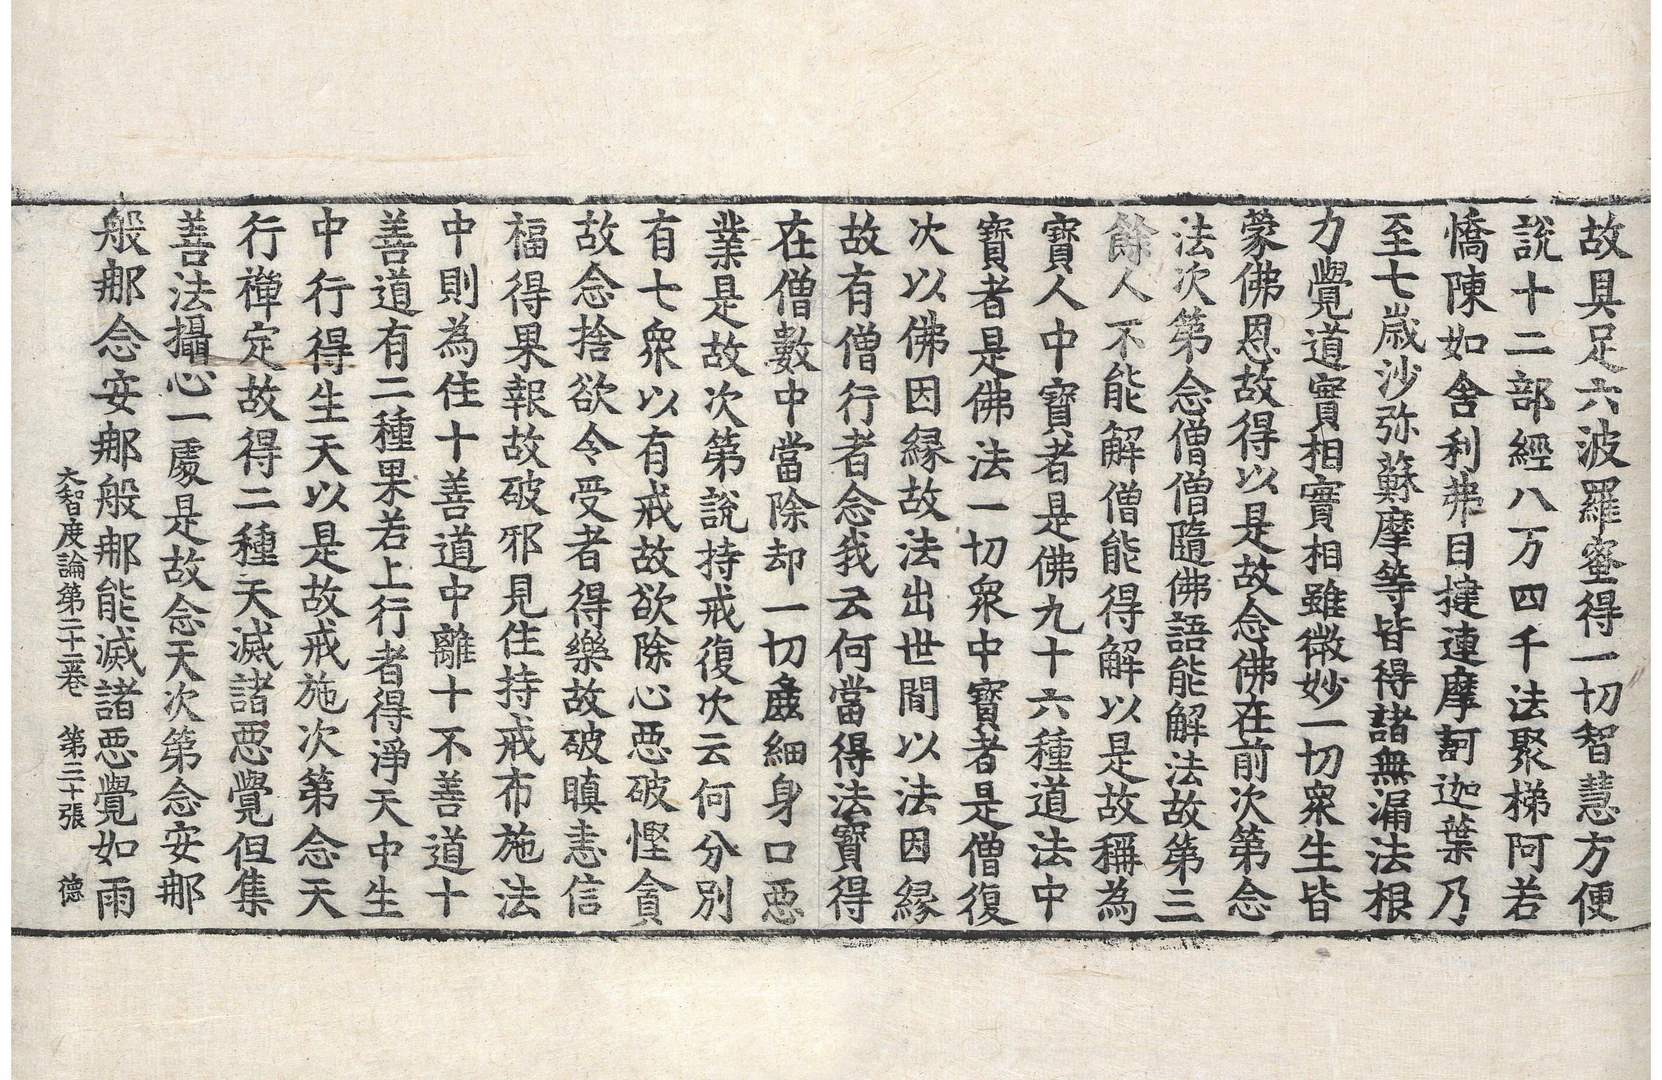 故具足六波羅蜜得一切智慧方便
說十二部經八万四千法聚梯阿若
憍陳如舍利弗目揵連摩訶迦葉乃
至七歲沙弥蘇摩等皆得諸無漏法根
力覺道實相實相雖微妙一切衆生皆
蒙佛恩故得以是故念佛在前次第念
法次第念僧僧隨佛語能解法故第三
餘人不能解僧能得解以是故稱為
寶人中寶者是佛九十六種道法中
寶者是佛法一切衆中寶者是僧復
次以佛因緣故法出世間以法因緣
故有僧行者念我云何當得法寶得
在僧數中當除却一切麁細身口惡
業是故次第說持戒復次云何分別
有七衆以有戒故欲除心惡破慳貪
故念捨欲令受者得樂故破瞋恚信
福得果報故破邪見住持戒布施法
中則為住十善道中離十不善道十
善道有二種果若上行者得淨天中生
中行得生天以是故戒施次第念天
行禪定故得二種天滅諸惡覺但集
善法攝心一處是故念天次第念安那
般那念安那般那能滅諸惡覺如雨
大智度論第二十二卷　第二十張　德